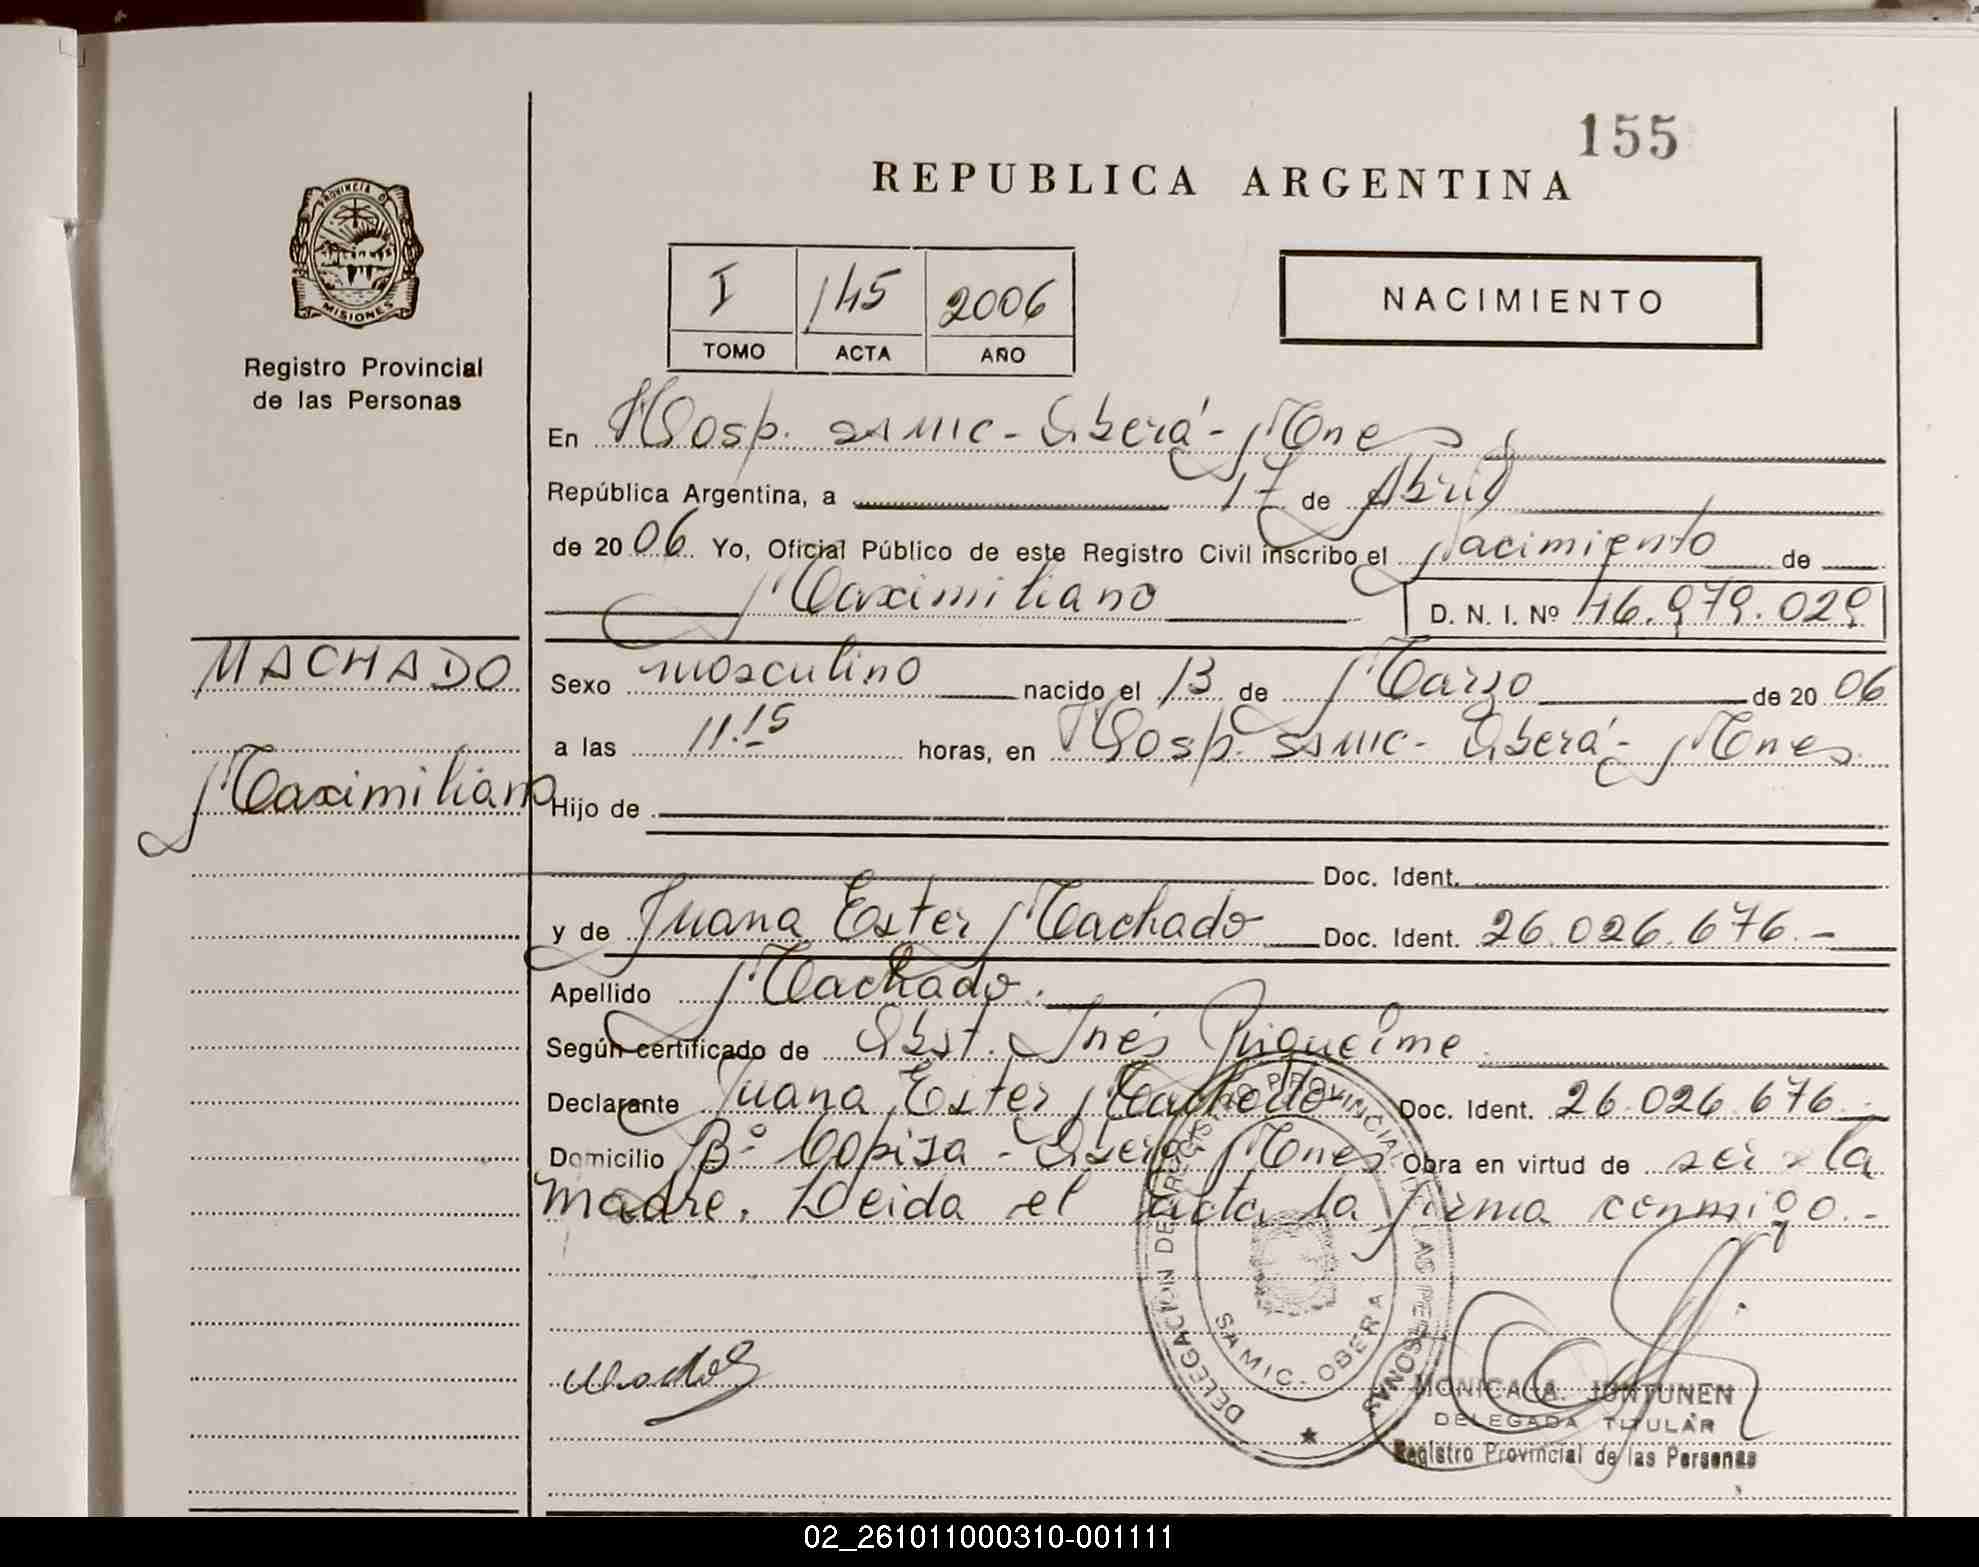 155
REPUBLICA ARGENTINA
PROVINCIA DE MISIONES
Registro Provincial
de las Personas
I 145 2006
TOMO ACTA AÑO
NACIMIENTO
En Hosp. SAMIC - Oberá - Mnes
República Argentina, a 17 de Abril
de 2006 Yo, Oficial Público de este Registro Civil inscribo el Nacimiento de
Maximiliano D. N. I. Nº 46.979.029
MACHADO
Maximiliano
Sexo masculino nacido el 13 de Marzo de 2006
a las 11.15 horas, en Hosp. SAMIC - Oberá - Mnes
Hijo de
Doc. Ident.
y de Juana Ester Machado Doc. Ident. 26.026.676.-
Apellido Machado.
Según certificado de Obst. Inés
Declarante Juana Ester Machado Doc. Ident. 26.026.676.-
Domicilio Bº Copisa - Oberá Mnes Obra en virtud de ser la
madre. Leida el acta la firma conmigo.-
DELEGACION DEL REGISTRO PROVINCIAL DE LAS PERSONAS
SAMIC - OBERA
MONICA A. JUNTUNEN
DELEGADA TITULAR
Registro Provincial de las Personas
02_261011000310-001111